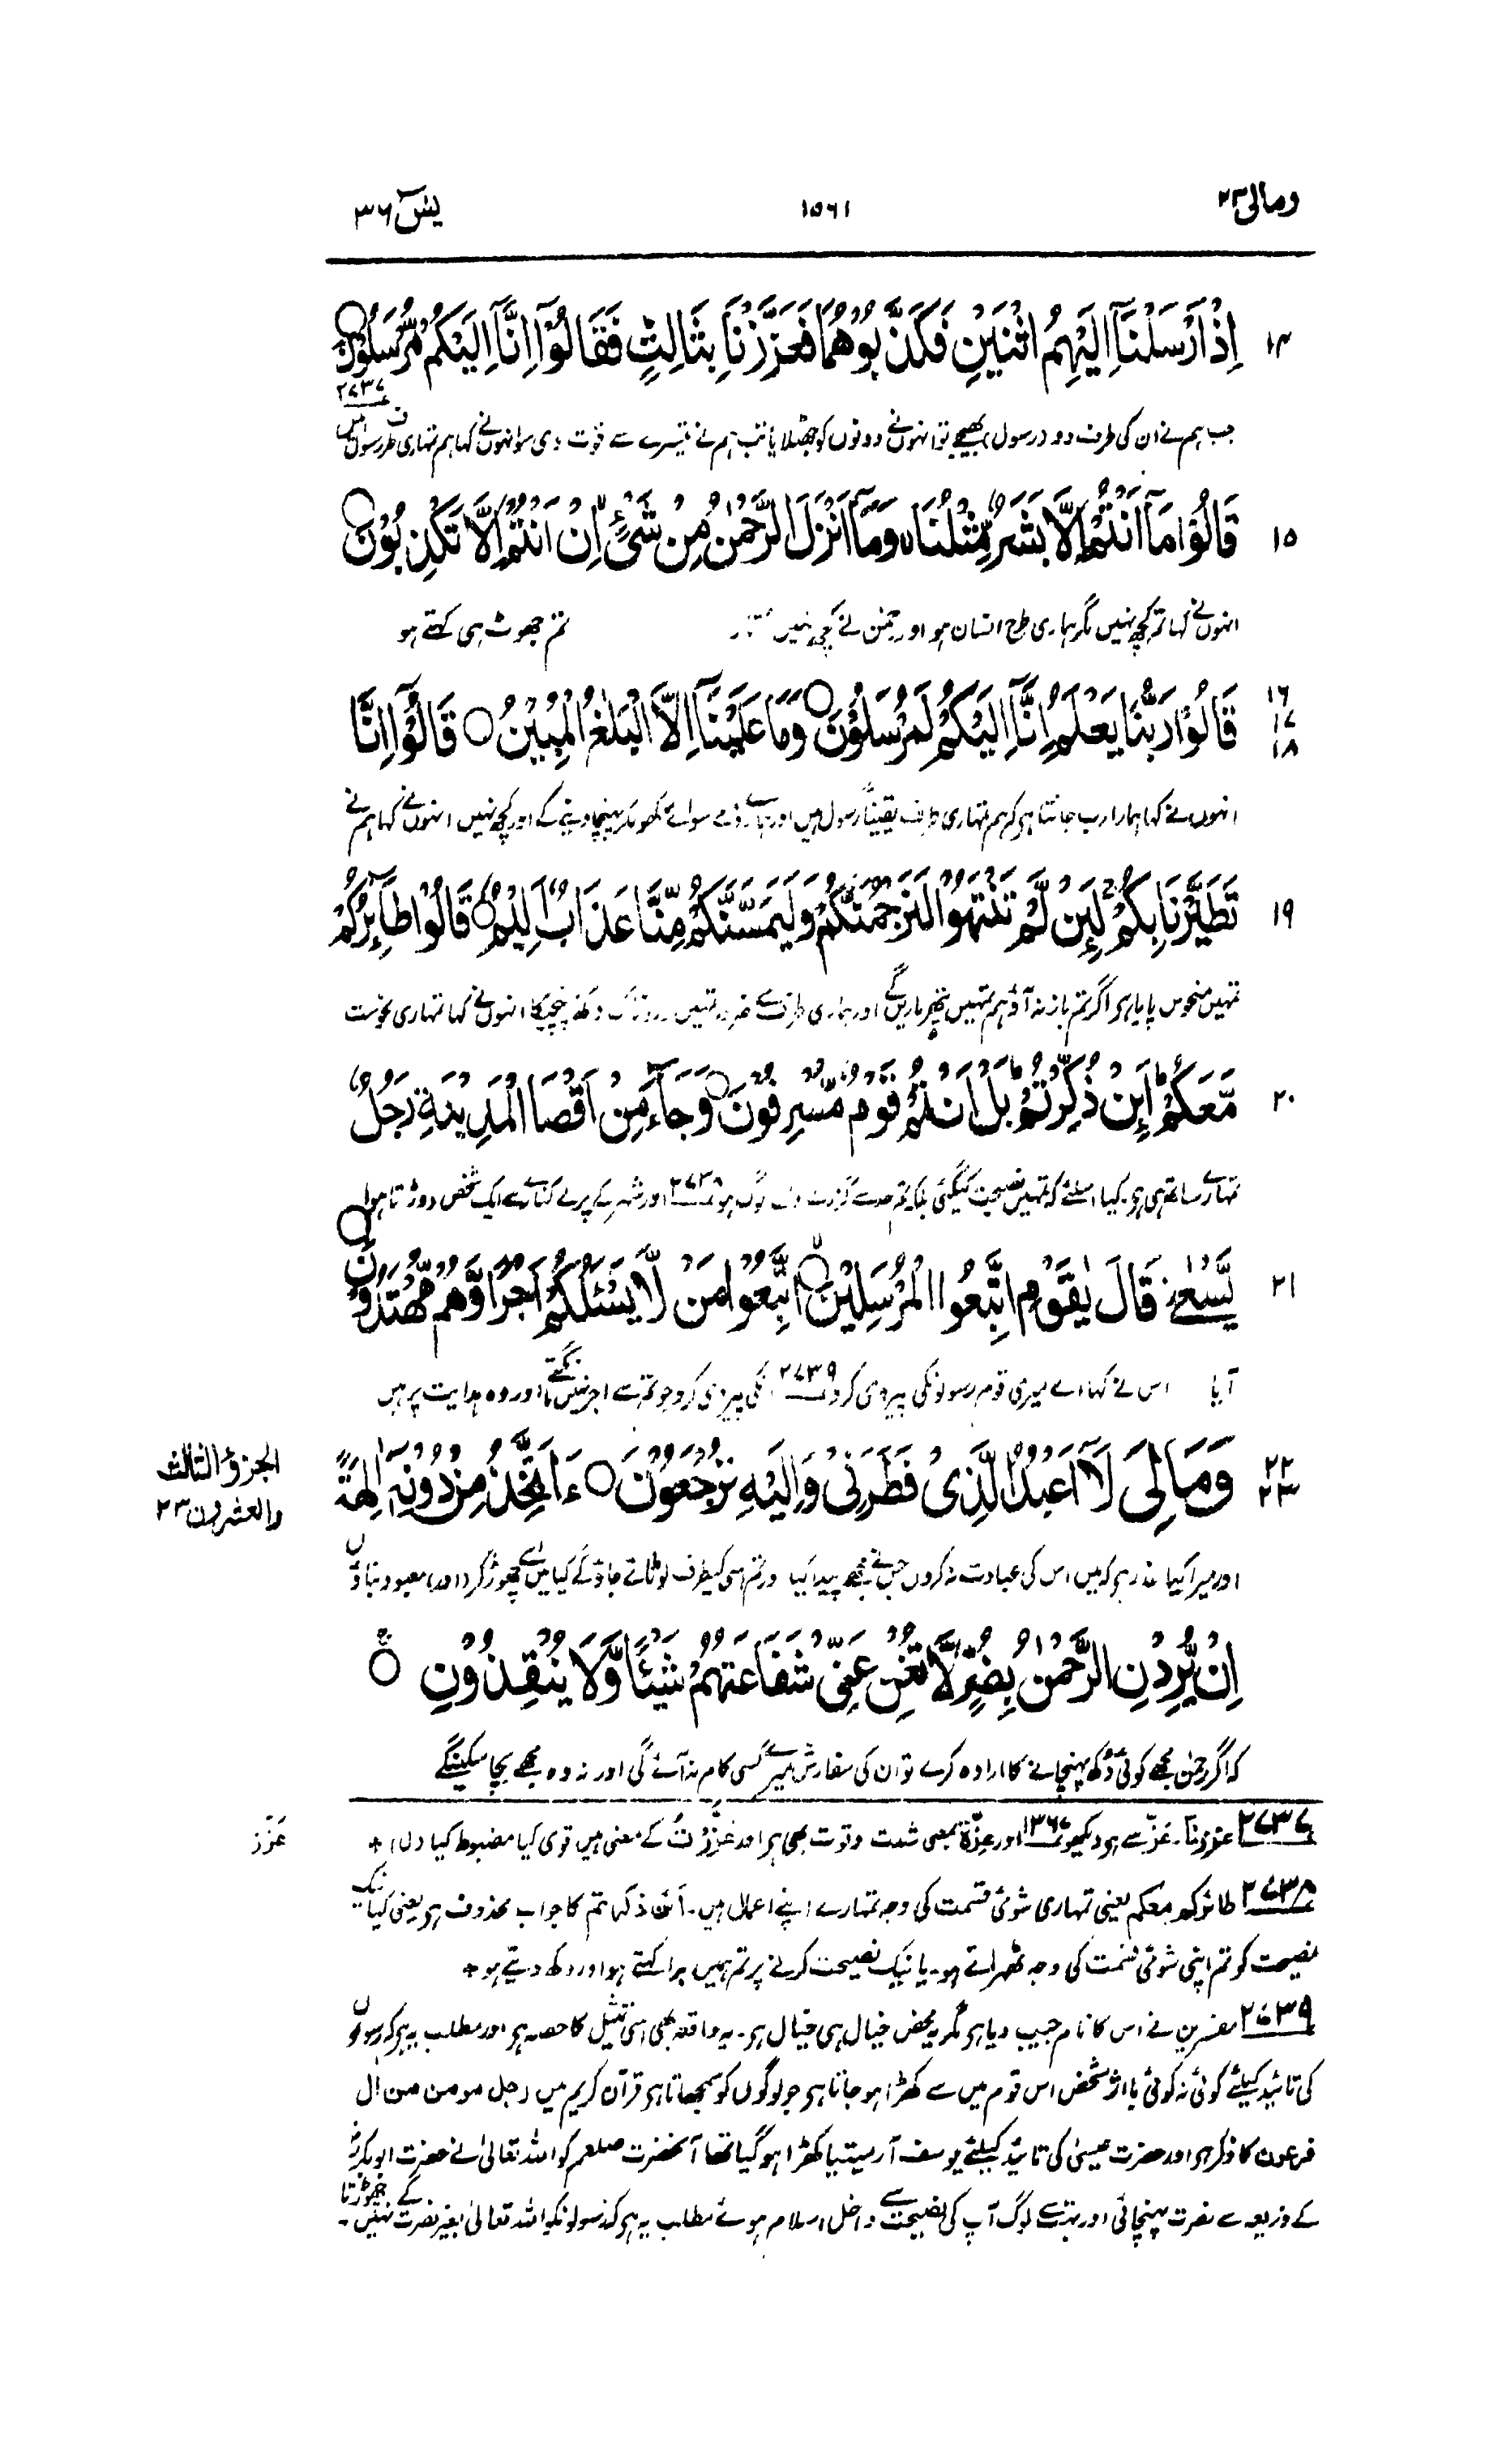 ومالی ۲۳
۱۵۶۱
یٰسٓ ۳۶
۱۴ اِذْ اَرْسَلْنَاۤ اِلَیْهِمُ اثْنَیْنِ فَكَذَّبُوْهُمَا فَعَزَّزْنَا بِثَالِثٍ فَقَالُوْۤا اِنَّاۤ اِلَیْكُمْ مُّرْسَلُوْنَ
جب ہم نے ان کی طرف دو (رسول) بھیجے تو انہوں نے دونوں کو جھٹلایا تب ہم نے تیسرے سے قوت دی سو انہوں نے کہا ہم تمہاری طرف رسول ہیں ۲۷۳۷
۱۵ قَالُوْا مَاۤ اَنْتُمْ اِلَّا بَشَرٌ مِّثْلُنَا ۙ وَمَاۤ اَنْزَلَ الرَّحْمٰنُ مِنْ شَیْءٍ ۙ اِنْ اَنْتُمْ اِلَّا تَكْذِبُوْنَ
انہوں نے کہا تم کچھ نہیں مگر ہماری طرح انسان ہو اور رحمٰن نے کچھ نہیں تم جھوٹ ہی کہتے ہو
۱۶ ۱۷ ۱۸ قَالُوْا رَبُّنَا یَعْلَمُ اِنَّاۤ اِلَیْكُمْ لَمُرْسَلُوْنَ ○ وَمَا عَلَیْنَاۤ اِلَّا الْبَلٰغُ الْمُبِیْنُ ○ قَالُوْۤا اِنَّا
انہوں نے کہا ہمارا رب جانتا ہے کہ ہم تمہاری طرف یقیناً رسول ہیں اور ہمارے ذمے سوائے کھول کر پہنچا دینے کے اور کچھ نہیں انہوں نے کہا ہم نے
۱۹ تَطَیَّرْنَا بِكُمْ ۚ لَئِنْ لَّمْ تَنْتَهُوْا لَنَرْجُمَنَّكُمْ وَلَیَمَسَّنَّكُمْ مِّنَّا عَذَابٌ اَلِیْمٌ ○ قَالُوْا طَآئِرُكُمْ
تمہیں منحوس پایا ہے اگر تم باز نہ آؤ ہم تمہیں پتھر ماریں گے اور ہماری طرف سے ضرور تمہیں دردناک دکھ پہنچیگا انہوں نے کہا تمہاری نحوست
۲۰ مَّعَكُمْ ؕ اَئِنْ ذُكِّرْتُمْ ؕ بَلْ اَنْتُمْ قَوْمٌ مُّسْرِفُوْنَ ○ وَجَآءَ مِنْ اَقْصَا الْمَدِیْنَةِ رَجُلٌ
تمہارے ساتھ ہی ہے۔ کیا اسلئے کہ تمہیں نصیحت کیگئی بلکہ تم حد سے گزرنے والے لوگ ہو ۲۷۳۸ اور شہر کے پرلے کنارے سے ایک شخص دوڑتا ہوا
۲۱ یَّسْعٰی ز قَالَ یٰقَوْمِ اتَّبِعُوا الْمُرْسَلِیْنَ ○ اتَّبِعُوْا مَنْ لَّا یَسْئَلُكُمْ اَجْرًا وَّهُمْ مُّهْتَدُوْنَ ○
آیا اس نے کہا اے میری قوم رسولونکی پیروی کرو ۲۷۳۹ انکی پیروی کرو جو تم سے اجر نہیں مانگتے اور وہ ہدایت پر ہیں
۲۲ ۲۳ وَمَا لِیَ لَاۤ اَعْبُدُ الَّذِیْ فَطَرَنِیْ وَاِلَیْهِ تُرْجَعُوْنَ ○ ءَاَتَّخِذُ مِنْ دُوْنِهٖۤ اٰلِهَةً
الجزؤ الثالث والعشرون ۲۳
اور میرا کیا عذر ہے کہ میں اس کی عبادت نہ کروں جس نے مجھے پیدا کیا اور تم اسی کیطرف لوٹائے جاؤ گے کیا میں اسے چھوڑ کر (اور) معبود بناؤں
اِنْ یُّرِدْنِ الرَّحْمٰنُ بِضُرٍّ لَّا تُغْنِ عَنِّیْ شَفَاعَتُهُمْ شَیْئًا وَّلَا یُنْقِذُوْنِ ○
کہ اگر رحمٰن مجھے کوئی دکھ پہنچانے کا ارادہ کرے تو ان کی سفارش میرے کسی کام نہ آئے گی اور نہ وہ مجھے بچا سکینگے
۲۷۳۷ عززنا۔ عَزّ سے ہے دیکھو ۱۳۶۷ اور عِزّة بمعنی شدت وقوت بھی ہے اور عَزَّزْتُ کے معنی ہیں قوی کیا مضبوط کیا (ل) +
عَزَّز
۲۷۳۸ طائرکم معکم یعنی تمہاری شومئی قسمت کی وجہ تمہارے اپنے اعمال ہیں۔ اَئن ذکرتم کا جواب محذوف ہے یعنی کیا نیک
نصیحت کو تم اپنی شومئی قسمت کی وجہ ٹھہراتے ہو۔ یا نیک نصیحت کرنے پر تم ہمیں برا کہتے ہو اور دکھ دیتے ہو +
۲۷۳۹ مفسرین نے اس کا نام حبیب دیا ہے مگر یہ محض خیال ہی خیال ہے۔ یہ واقعہ بھی اسی تمثیل کا حصہ ہے اور مطلب یہ ہے کہ رسولوں
کی تائید کیلئے کوئی نہ کوئی بااثر شخص اس قوم میں سے کھڑا ہو جاتا ہے جو لوگوں کو سمجھاتا ہے قرآن کریم میں رجل مومن من ال
فرعون کا ذکر ہے اور حضرت عیسیٰ کی تائید کیلئے یوسف آرمیتیا کھڑا ہو گیا تھا آنحضرت صلعم کو اللہ تعالیٰ نے حضرت ابوبکرؓ
کے ذریعہ سے نصرت پہنچائی اور بہت سے لوگ آپ کی نصیحت سے داخل اسلام ہوئے مطلب یہ ہے کہ رسولونکو اللہ تعالیٰ بغیر نصرت کے نہیں چھوڑتا۔